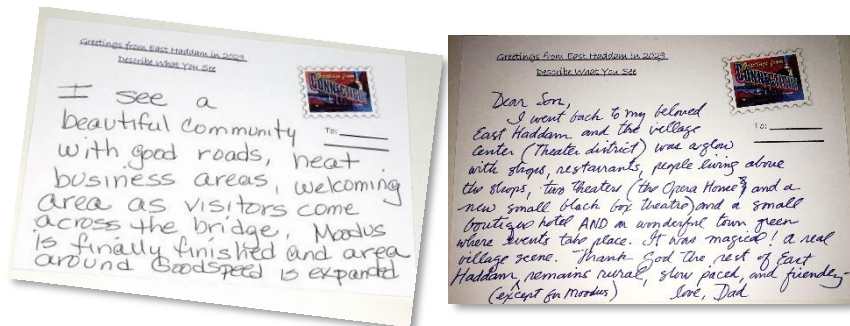 Greetings from East Haddam in 2029
Describe What You See
Greetings from
CONNECTICUT
To:
I see a
beautiful community
with good roads, neat
business areas, welcoming
area as visitors come
across the bridge, Moodus
is finally finished and area
around Goodspeed is expanded
Greetings from East Haddam in 2029
Describe What You See
Greetings from
CONNECTICUT
To:
Dear Son,
I went back to my beloved
East Haddam and the village
center (Theater district) was aglow
with shops, restaurants, people living above
the shops, two theaters (the Opera House) and a
new small black box theatre) and a small
boutique hotel AND a wonderful town green
where events take place. It was magical! a real
village scene. Thank God the rest of East
Haddam remains rural, slow paced, and friendly
(except for Moodus)
love, Dad